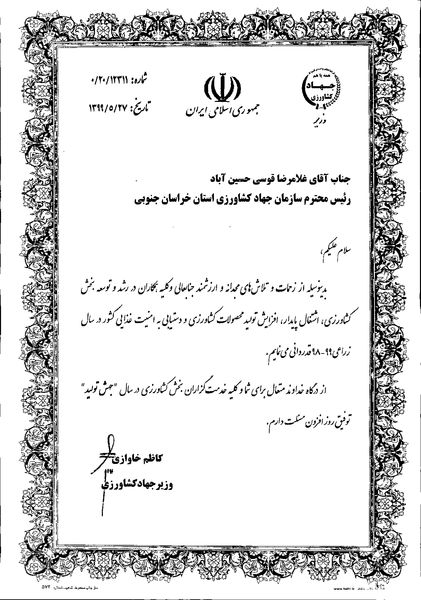 همه با هم
جهاد
کشاورزی
وزیر
جمهوری اسلامی ایران
شماره: ۰/۲۰/۱۲۳۱۱
تاریخ: ۱۳۹۹/۵/۲۷
جناب آقای غلامرضا قوسی حسین آباد
رئیس محترم سازمان جهاد کشاورزی استان خراسان جنوبی
سلام علیکم،
بدینوسیله از زحمات و تلاش‌های مجدانه و ارزشمند جنابعالی و کلیه همکاران در رشد و توسعه بخش
کشاورزی، اشتغال پایدار، افزایش تولید محصولات کشاورزی و دستیابی به امنیت غذایی کشور در سال
زراعی ۹۹-۹۸ قدردانی می نمایم.
از درگاه خداوند متعال برای شما و کلیه خدمت گزاران بخش کشاورزی در سال "جهش تولید"
توفیق روز افزون مسئلت دارم.
کاظم خاوازی
وزیر جهاد کشاورزی